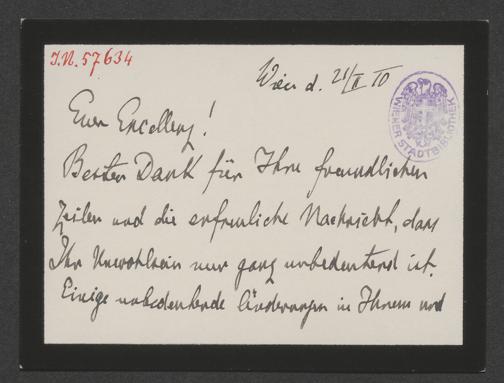 I.N. 57634
Wien d. 21/II 10
WIENER STADTBIBLIOTHEK
Euer Excellenz!
Besten Dank für Ihre freundlichen
Zeilen und die erfreuliche Nachricht, dass
Ihr Unwohlsein nur ganz unbedeutend ist.
Einige unbedeutende Änderungen in Ihrem und